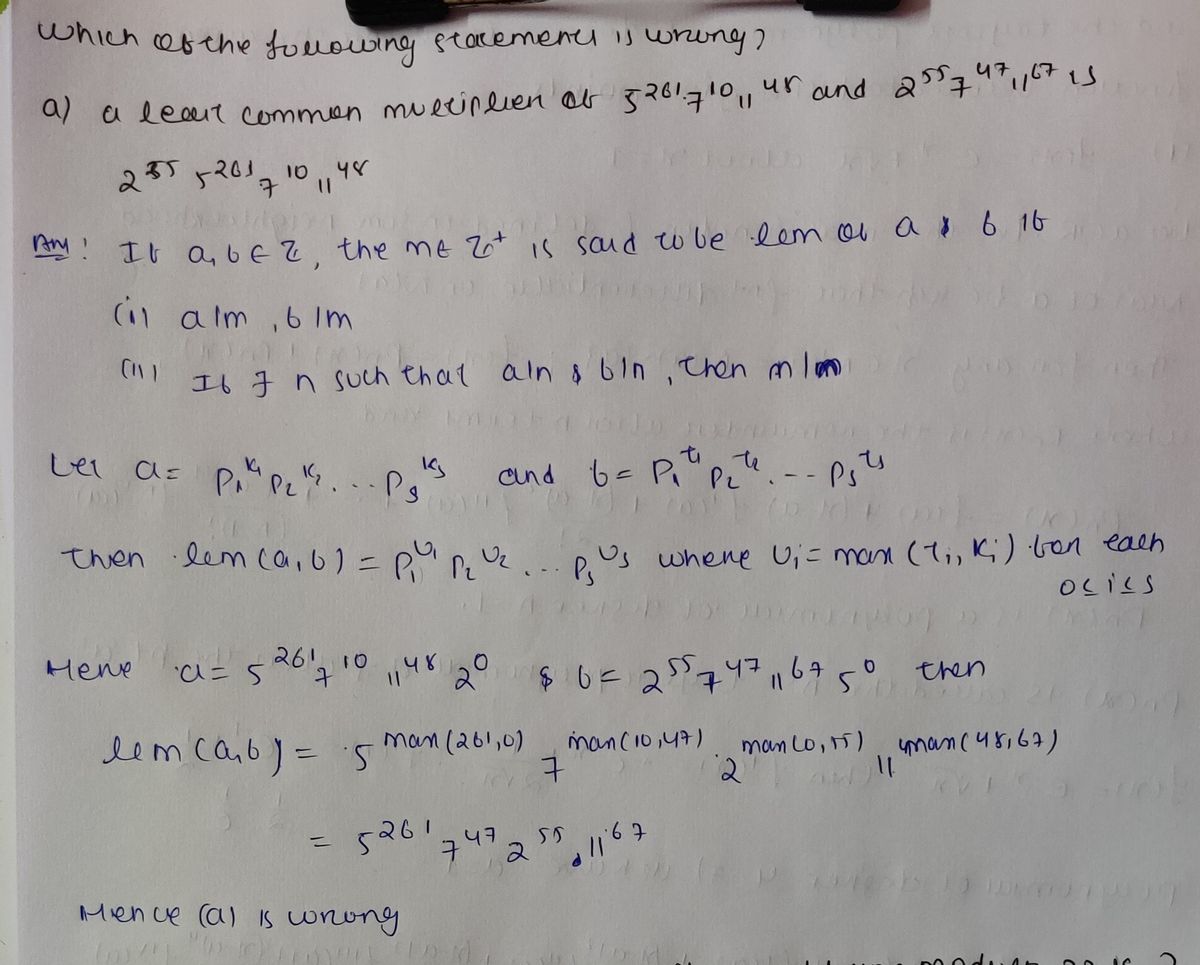 Which of the following statements is wrong?
a) a least common multiplier of 5^261·7^10 11^48 and 2^55 7^47 11^67 is
2^55 5^261 7^10 11^48
Ans: If a, b ∈ ℤ, the m ∈ ℤ^+ is said to be lcm of a & b if
(i) a|m , b|m
(ii) If ∃ n such that a|n & b|n , then m|n
Let a = P₁^k₁ P₂^k₂ . . . Pₛ^kₛ and b = P₁^t₁ P₂^t₂ . - - Pₛ^tₛ
then lcm (a, b) = P₁^U₁ P₂^U₂ . . . Pₛ^Uₛ where Uᵢ = max (tᵢ, kᵢ) for each
0≤i≤s
Here a = 5^261 7^10 11^48 2^0 & b = 2^55 7^47 11^67 5^0 then
lcm (a,b) = 5^max(261,0) 7^max(10,47) · 2^max(0,55) 11^max(48,67)
= 5^261 7^47 2^55 . 11^67
Hence (a) is wrong